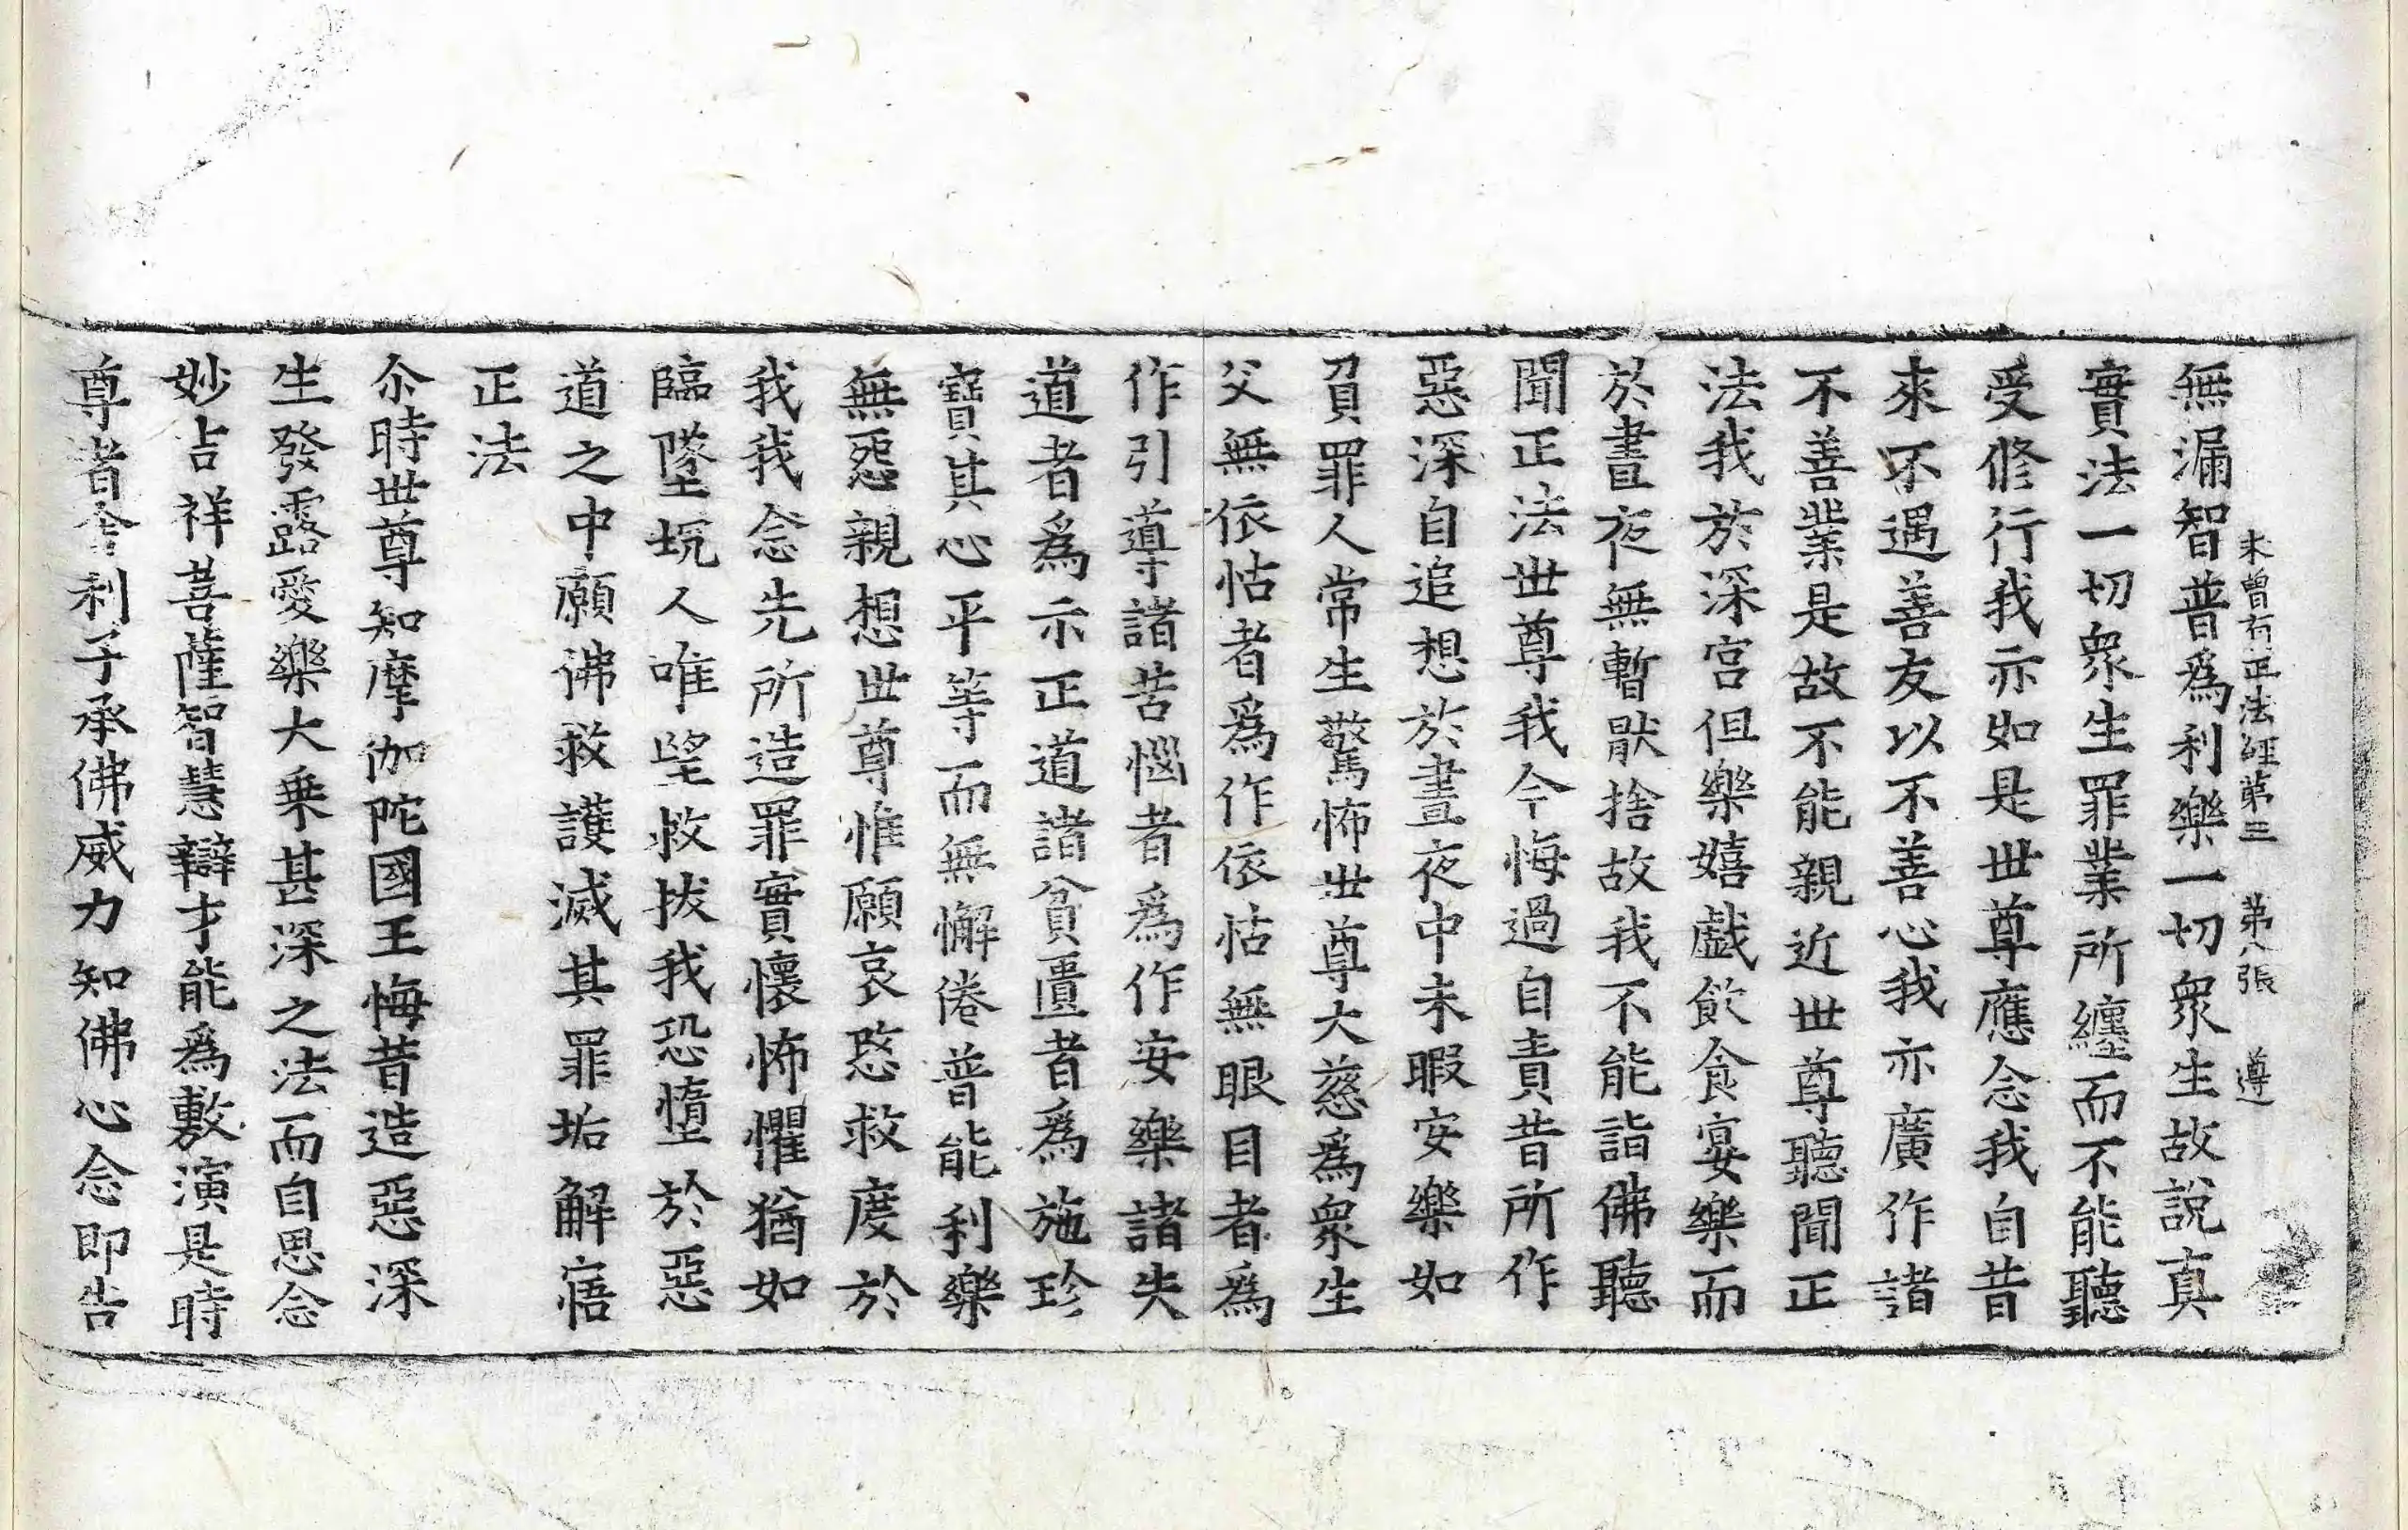 未曾有正法經第三 第八張 遵
無漏智普爲利樂一切衆生故說真
實法一切衆生罪業所纏而不能聽
受修行我亦如是世尊應念我自昔
來不遇善友以不善心我亦廣作諸
不善業是故不能親近世尊聽聞正
法我於深宮但樂嬉戲飲食宴樂而
於晝夜無暫猒捨故我不能詣佛聽
聞正法世尊我今悔過自責昔所作
惡深自追想於晝夜中未暇安樂如
負罪人常生驚怖世尊大慈爲衆生
父無依怙者爲作依怙無眼目者爲
作引導諸苦惱者爲作安樂諸失
道者爲示正道諸貧匱者爲施珍
寶其心平等而無懈倦普能利樂
無惡親想世尊惟願哀愍救度於
我我念先所造罪實懷怖懼猶如
臨墜坑人唯望救拔我恐墮於惡
道之中願佛救護滅其罪垢解悟
正法
尒時世尊知摩伽陀國王悔昔造惡深
生發露愛樂大乗甚深之法而自思念
妙吉祥菩薩智慧辯才能爲敷演是時
尊者舍利子承佛威力知佛心念即告